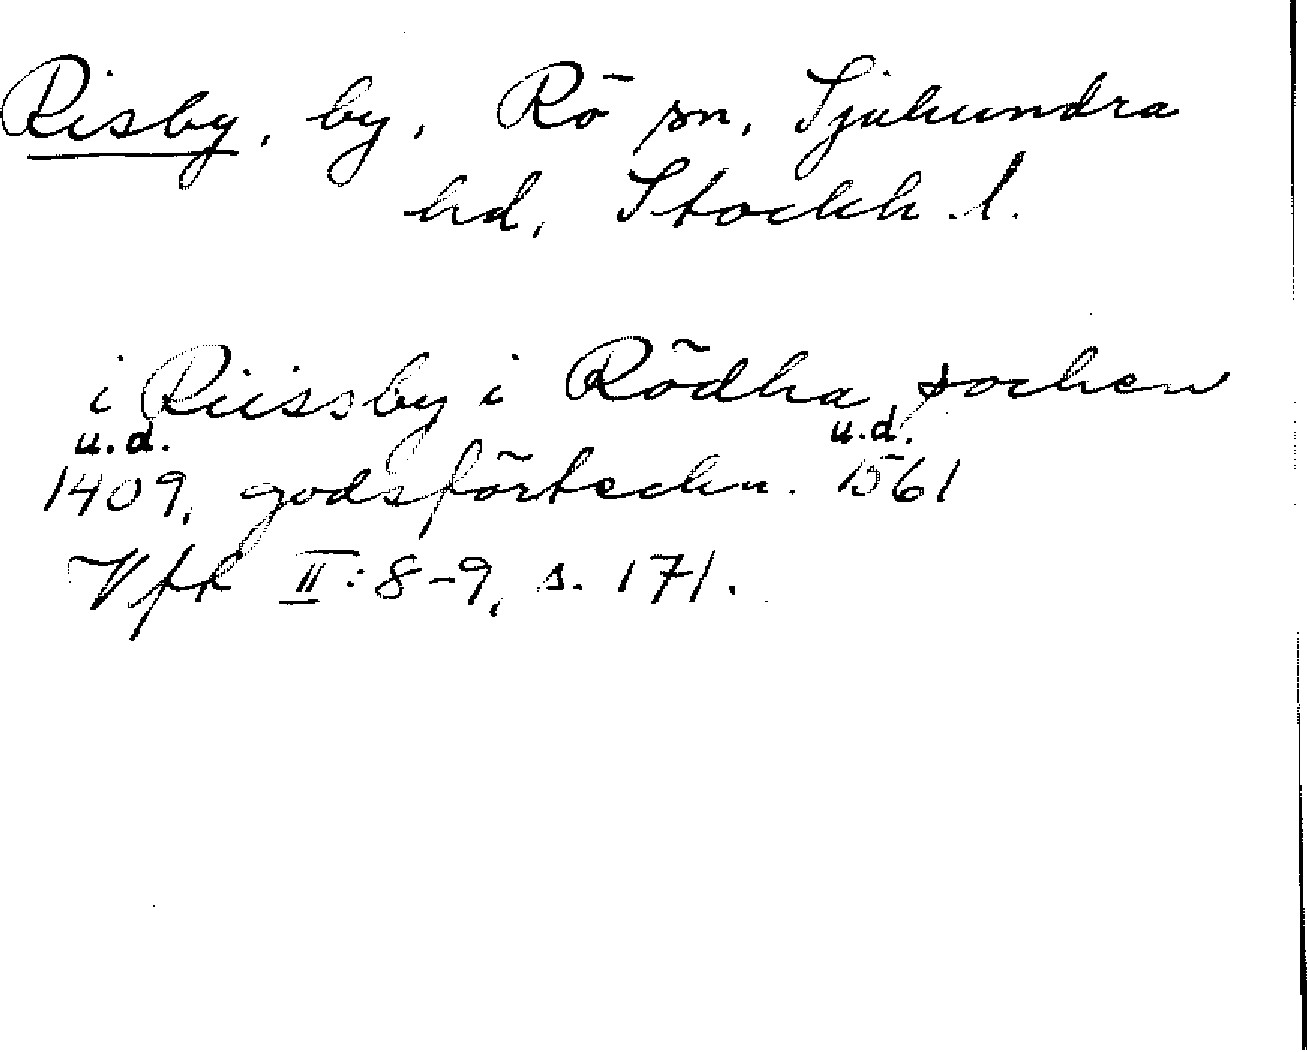 Risby, by, Rö sn, Sjuhundra
hd, Stockh. l.
i Riissby i Rödha sochen
u.d. u.d.
1409, godsförteckn. 1561
Vfr II: 8-9, s. 171.